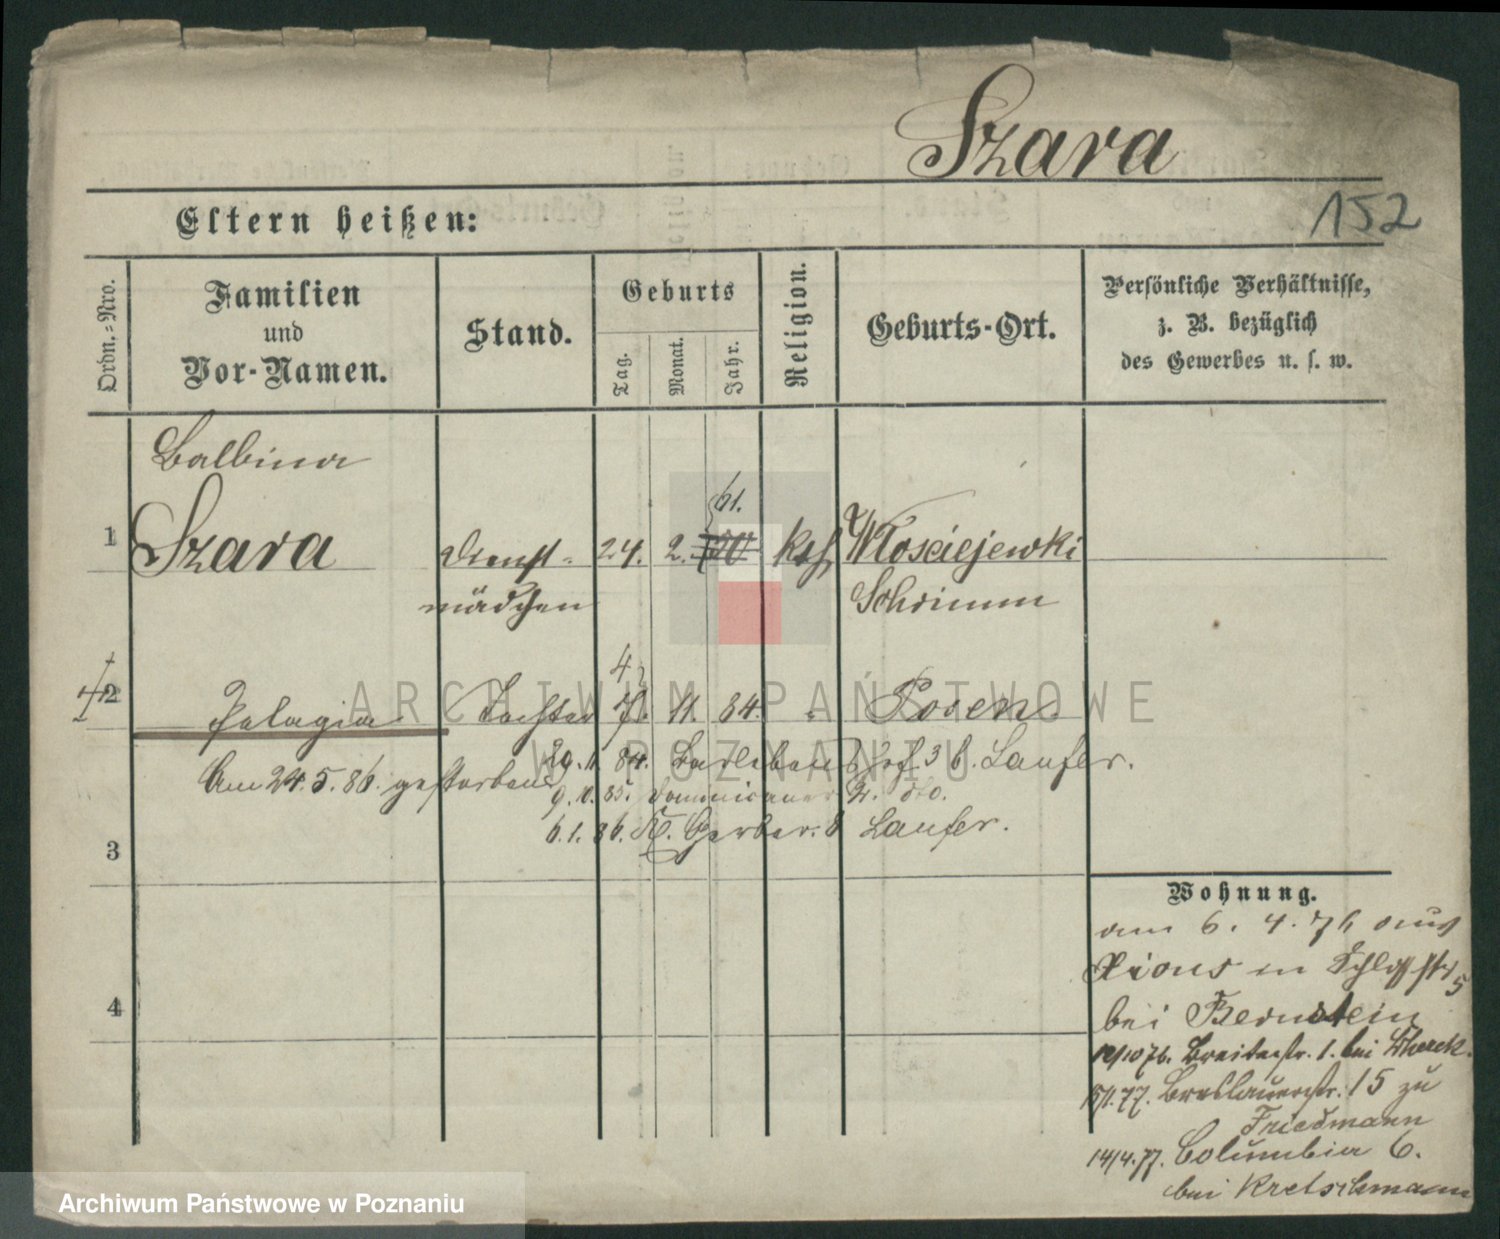 Szara
152
Eltern heißen:
Ordn.=Nro.
Familien
und
Vor-Namen.
Stand.
Geburts
Tag.
Monat.
Jahr.
Religion.
Geburts-Ort.
Persönliche Verhältnisse,
z. B. bezüglich
des Gewerbes u. s. w.
Balbina
61.
1 Szara Dienst- 24. 2. kth Włosciejewki
mädchen Schrimm
4
2 Pelagia Tochter 11. 84. " Posen.
29. 11. 84. Hof. 3 b. Laufer.
Am 24. 5. 86. gestorben
9. 10. 85. Dominicaner Str. dto.
6. 1. 86. Kl. Gerber. 8 Laufer.
3
4
Wohnung.
am 6. 4. 76 aus
Xions in Schloßstr 5
bei Bernstein
12/10 76. Breitestr. 1. bei
15/1. 77. Breslauerstr. 15 zu
Friedmann
14/4. 77. Columbia 6.
bei Kretschmann
ARCHIWUM PAŃSTWOWE
W POZNANIU
Archiwum Państwowe w Poznaniu